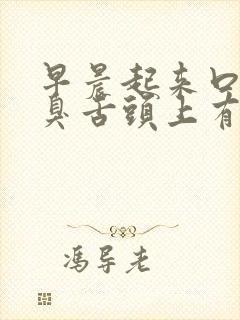 早晨起来口
臭舌头上有
馮导老